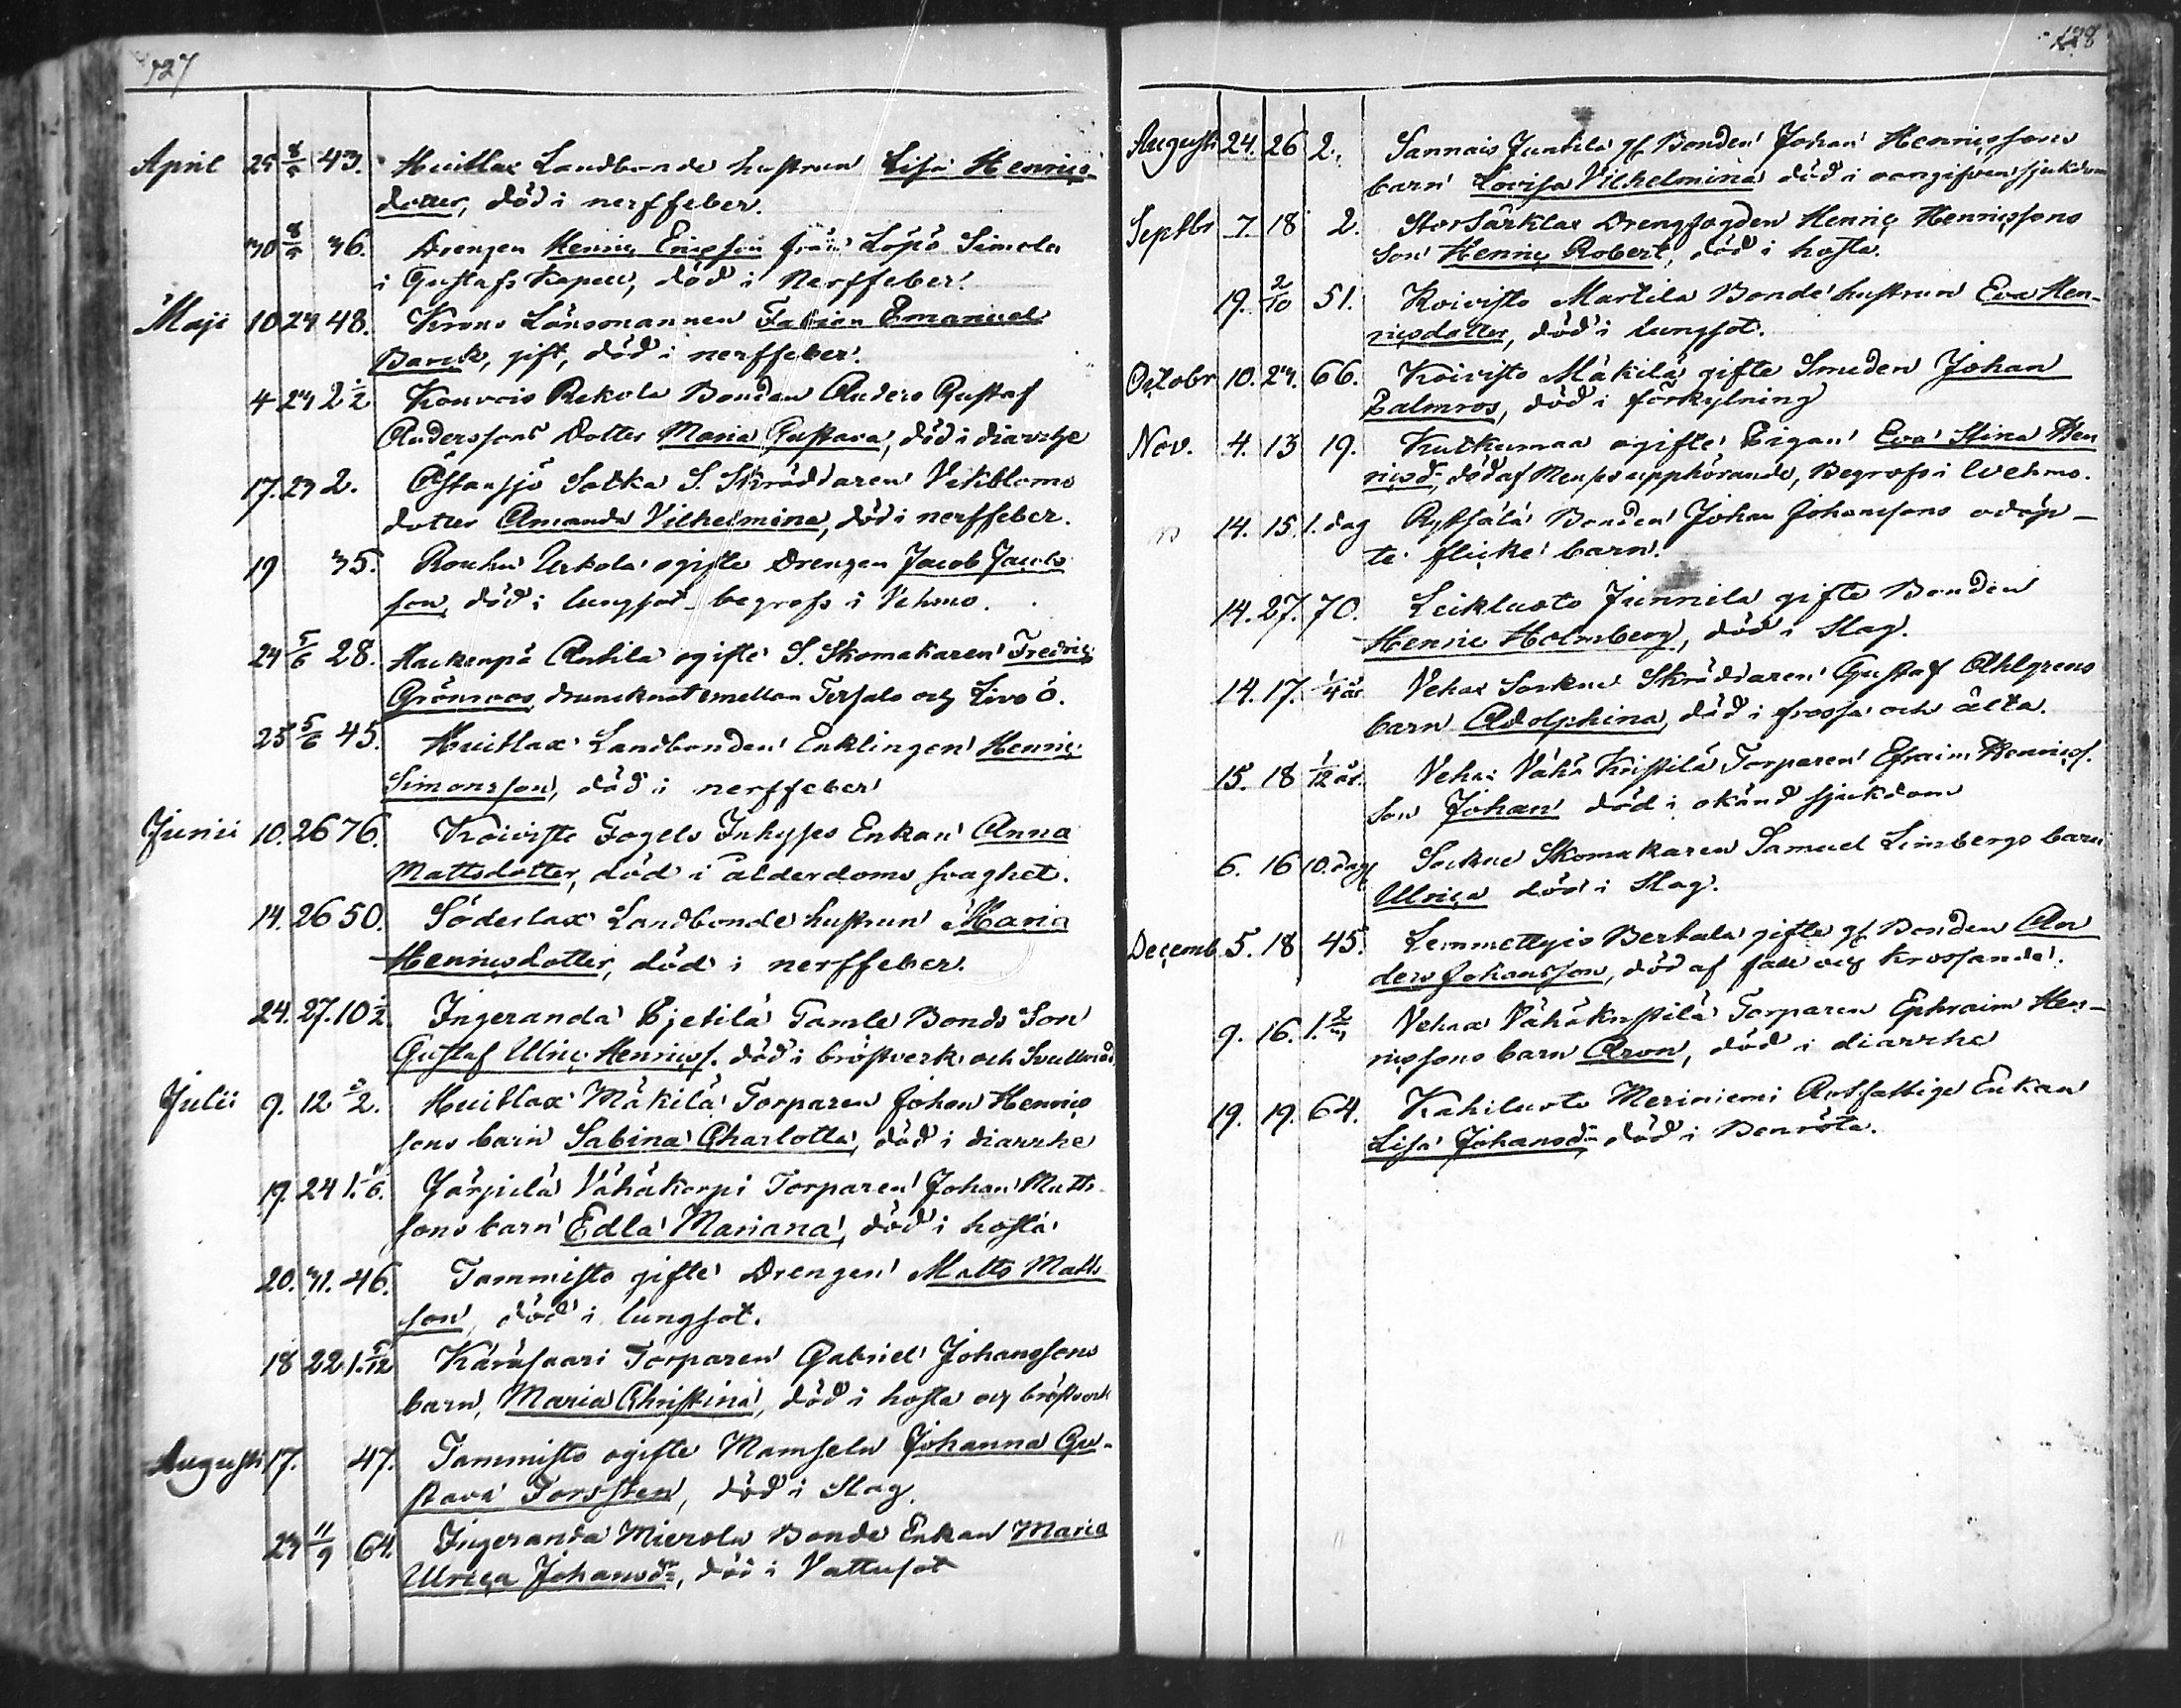 127
April 25 8/5 43. Huitlax Landbonde hustrun Lisa Henrics
dotter, död i nerffeber.
30 8/5 36. Drengen Henric Ericsson från Löpö Simola
i Gustafs Kapell, död i Nerffeber.
Maji 10 24 48. Krono Länsmannen Fabian Emanuel
Banck, gift, död i nerffeber.
4 24 2 1/2 Kourois Rekola Bonden Anders Gustaf
Anderssons dotter Maria Gustava, död i diarrhe
17. 23 2. Östansjö Sotka S. Skräddaren Vekbloms
dotter Amanda Vilhelmina, död i nerffeber.
19 35. Rouhu Uskola ogifte Drengen Jacob Jacobs
son, död i lungsot begrofs i Vehmo.
24 5/6 28. Hackenpä Antila ogifte S. Skomakaren Fredric
Grönroos drunknat emellan Tersalo och Livo ö.
25 5/6 45. Huitlax Landbonden Enklingen Henric
Simonsson, död i nerffeber
Junii 10. 26 76. Koivisto Fogels Inhyses Enkan Anna
Mattsdotter, död i ålderdoms svaghet.
14. 26 50. Söderlax Landbonde hustrun Maria
Henricsdotter, död i nerffeber.
24. 27. 10 1/2. Ingeranda Pjetilä Gamle Bonds Son
Gustaf Ulric Henricss. död i bröstverk och Svullnad
Julii 9. 12 1/2. Huitlax Mäkilä Torparen Johan Henrics
sons barn Sabina Charlotta, död i diarrhe
19. 24 1. 1/6. Järpilä Vähäkorpi Torparen Johan Matts
sons barn Edla Mariana, död i hosta
20. 31. 46. Tammisto gifte Drengen Matts Matts
son, död i lungsot.
18 22 1. 5/12 Käräsaari Torparen Gabriel Johanssons
barn, Maria Christina, död i hosta och bröstverk
Augusti 17. 47. Tammisto ogifte Mamseln Johanna Gu-
stava Forssten, död i Slag.
23 11/9 64. Ingeranda Mierola Bonde Enkan Maria
Ulrica Johansdr, död i Vattusot
128
Augusti 24. 26 2. Sannais Juntila gl. Bonden Johan Henricssons
barn Lovisa Vilhelmina död i oangifven sjukdom
Septbr 7. 18 2. Storsärklax Drengfogden Henric Henricssons
son Henric Robert, död i hosta.
19. 2/10 51. Koivisto Martila Bonde hustrun Eva Hen-
ricsdotter, död i lungsot.
Octobr 10. 24. 66. Koivisto Mäkilä gifte Smeden Johan
Palmros, död i förkylning
Nov. 4. 13 19. Kutkumaa ogifte Pigan Eva Stina Hen
ricsdr, död af Menses upphörande, Begrofs i Wehmo.
14. 15. 1. dag Rytsälä Bonden Johan Johanssons odöp-
te flicke barn.
14. 27. 70. Leikluoto Junnila gifte Bonden
Henric Holmberg, död i Slag.
14. 17. 1/4 år Vehas Sockne Skräddaren Gustaf Ahlgrens
barn Adolphina, död i frossa och älta.
15. 18 1/12 år. Vehas Vähä Kristilä Torparen Efraim Henricss.
son Johan död i okänd sjukdom
6. 16 10. dag Sockne Skomakaren Samuel Limbergs barn
Ulrica död i Slag.
Decemb. 5. 18 45. Lemmettyis Bertula gifte gl. Bonden An
ders Johansson, död af fall och krossande.
9. 16. 1. 2/3 Vehas Vähäkristilä Torparen Ephraim Hen-
ricssons barn Aron, död i diarrhe
19. 19. 64. Kahiluoto Meriniemi Rotfattige Enkan
Lisa Johansdr, död i Benröta.